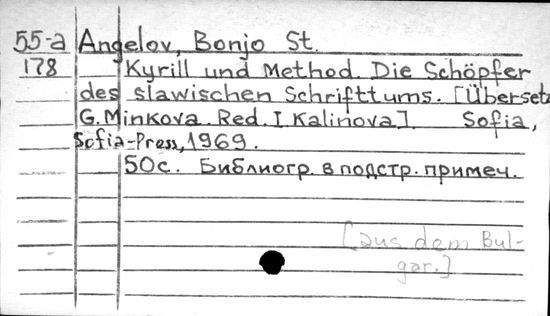 55-a Angelov, Bonjo St.
178 Kyrill und Method. Die Schöpfer
des slawischen Schrifttums. [Übersetz
G. Minkova. Red. I. Kalinova] Sofia,
Sofia-Press, 1969.
50с. Библиогр. в подстр. примеч.
[aus dem Bul-
gar.]